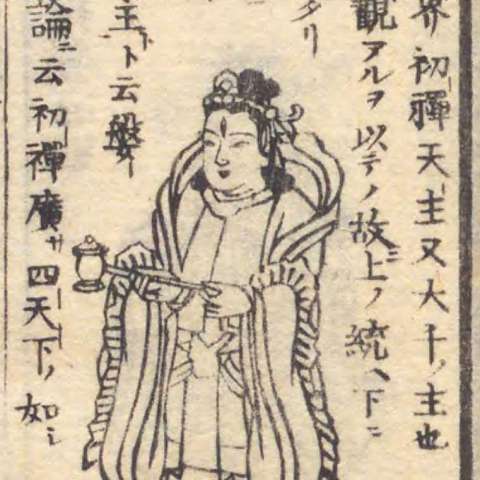 界初禪天ノ主又大千ノ主也
觀アルヲ以テノ故上ヲ統ヘ下ニ
タリ
主ト云
論ニ云初禪廣サ四天下ノ如シ